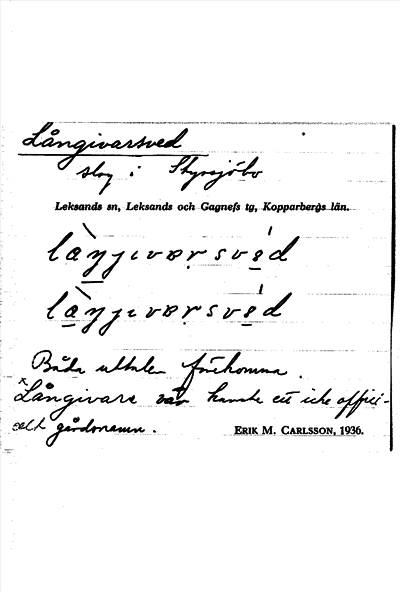 Långivarsved
skog i Styrsjöbo
Leksands sn, Leksands och Gagnefs tg, Kopparbergs län.
Båda uttalen förekomma.
Långivars var kanske ett icke offici-
ellt gårdsnamn.
ERIK M. CARLSSON, 1936.